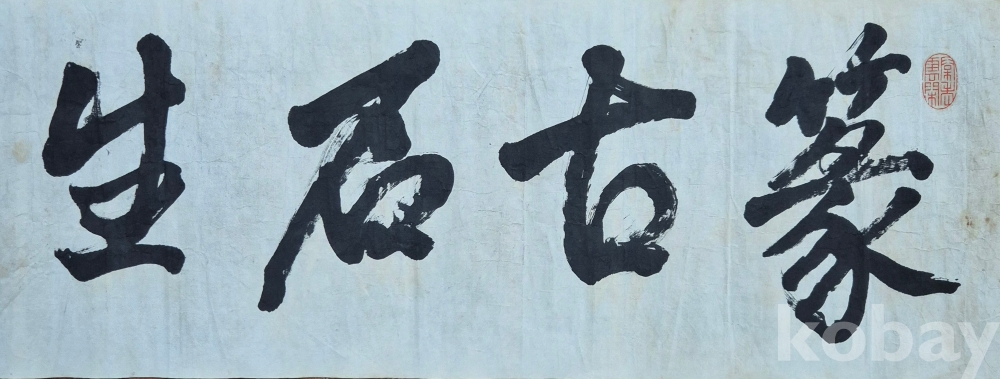 篆古石生
kobay